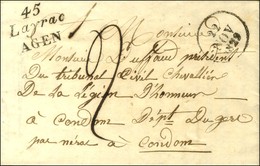 45
Layrac
AGEN
22
1829
2
Monsieur
Monsieur président
Du tribunal Civil Chevallier
De La Légion D'honneur
a Condom Dépt Du gers
par nérac a Condom